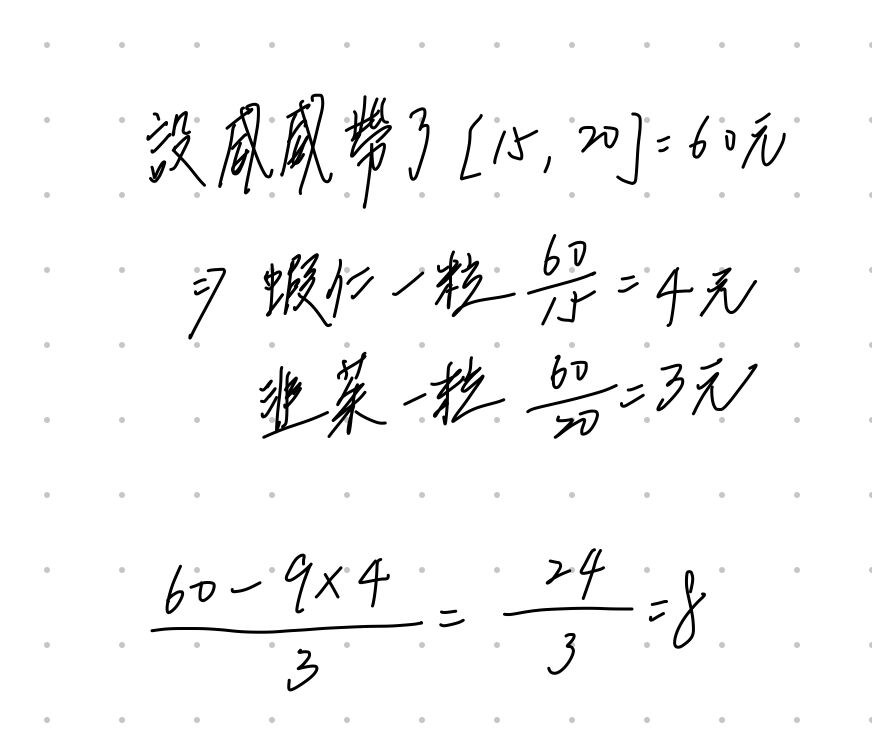 設威威帶了[15, 20]=60元
⇒ 蝦仁一粒 60/15 = 4元
韭菜一粒 60/20 = 3元
(60-9×4)/3 = 24/3 = 8